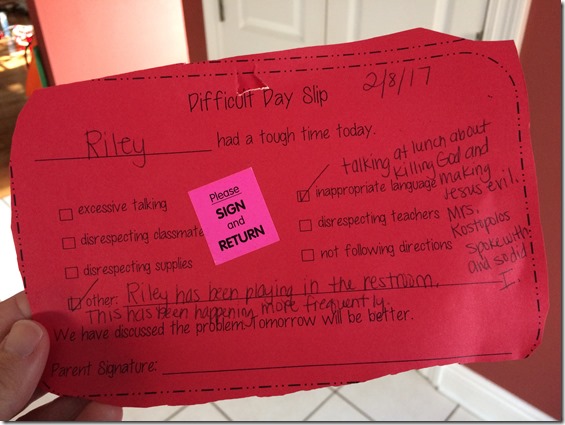 2/8/17
Difficult Day Slip
Riley had a tough time today.
talking at lunch about
killing God and
making
Jesus Evil.
Mrs.
Kostopolos
spoke with
and so did
I.
Please
SIGN
and
RETURN
excessive talking
disrespecting classmate
disrespecting supplies
inappropriate language
disrespecting teachers
not following directions
other: Riley has been playing in the restroom.
This has been happening more frequently.
We have discussed the problem. Tomorrow will be better.
Parent Signature: